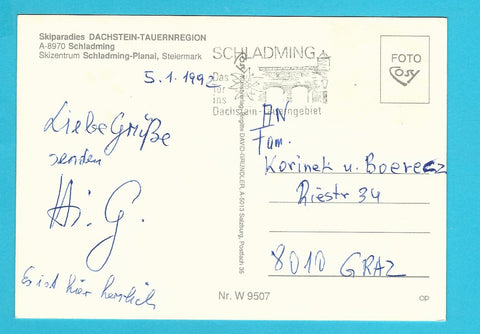 Skiparadies DACHSTEIN-TAUERNREGION
A-8970 Schladming
Skizentrum Schladming-Planai, Steiermark
5.1.1992
Liebe Grüße
senden
Hi. G.
Es ist hier herrlich
SCHLADMING
Das
Tor
ins
Dachstein-Tauerngebiet
FOTO
ÖSV
AN
Fam.
Korinek u. Boerecz
Riestr 34
8010 GRAZ
DAVID-GRÜNDLER, A-5013 Salzburg, Postfach 36
Nr. W 9507